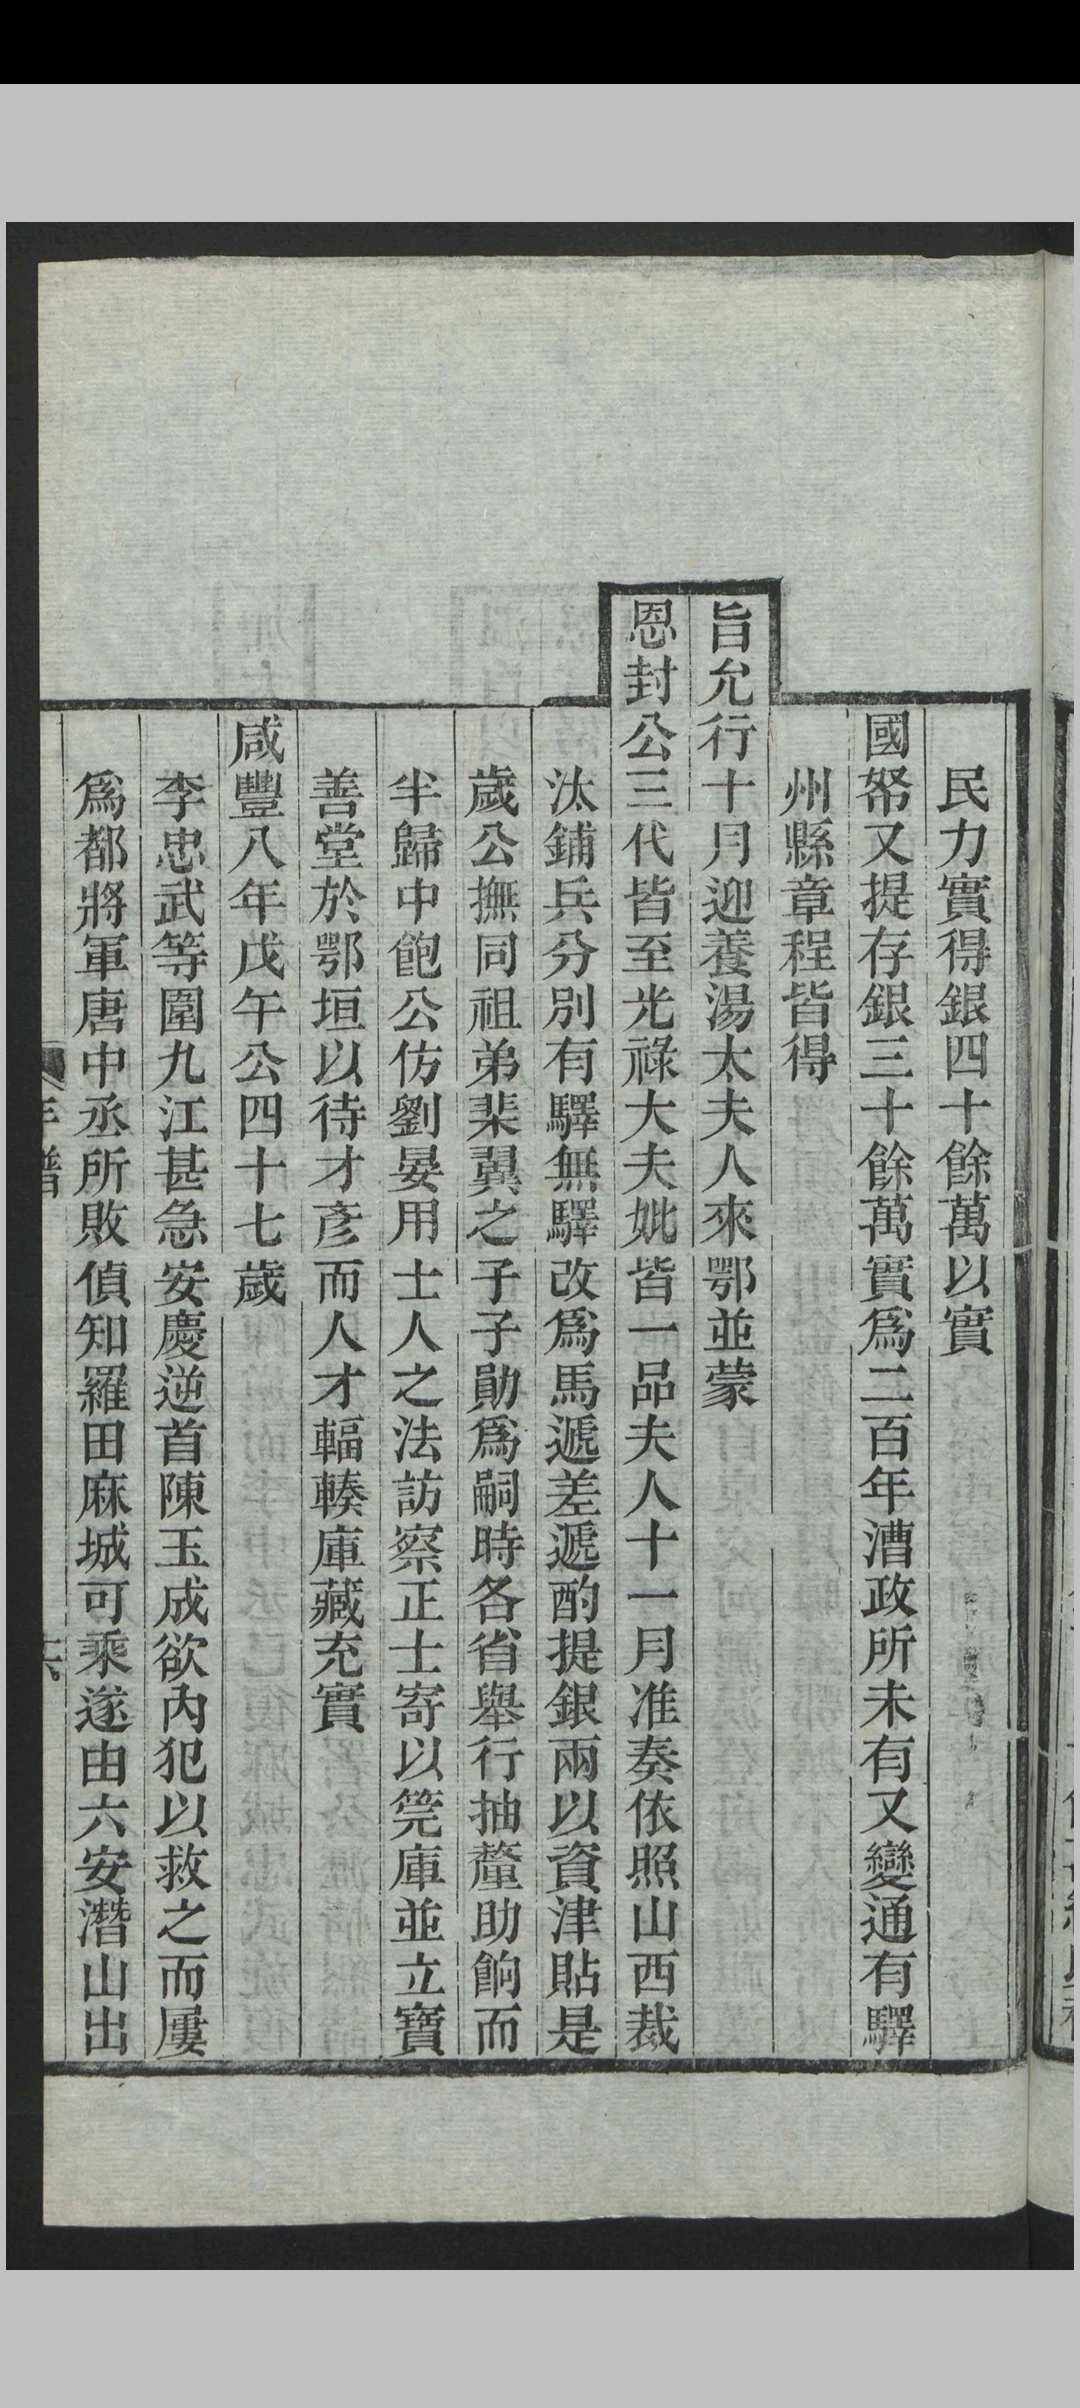 民力實得銀四十餘萬以實
國帑又提存銀三十餘萬實爲二百年漕政所未有又變通有驛
州縣章程皆得
旨允行十月迎養湯太夫人來鄂並蒙
恩封公三代皆至光祿大夫妣皆一品夫人十一月准奏依照山西裁
汰鋪兵分別有驛無驛改爲馬遞差遞酌提銀兩以資津貼是
歲公撫同祖弟棐翼之子子勛爲嗣時各省舉行抽釐助餉而
半歸中飽公仿劉晏用士人之法訪察正士寄以筦庫並立寶
善堂於鄂垣以待才彥而人才輻輳庫藏充實
咸豐八年戊午公四十七歲
李忠武等圍九江甚急安慶逆首陳玉成欲內犯以救之而屢
爲都將軍唐中丞所敗偵知羅田麻城可乘遂由六安潛山出
年譜
六